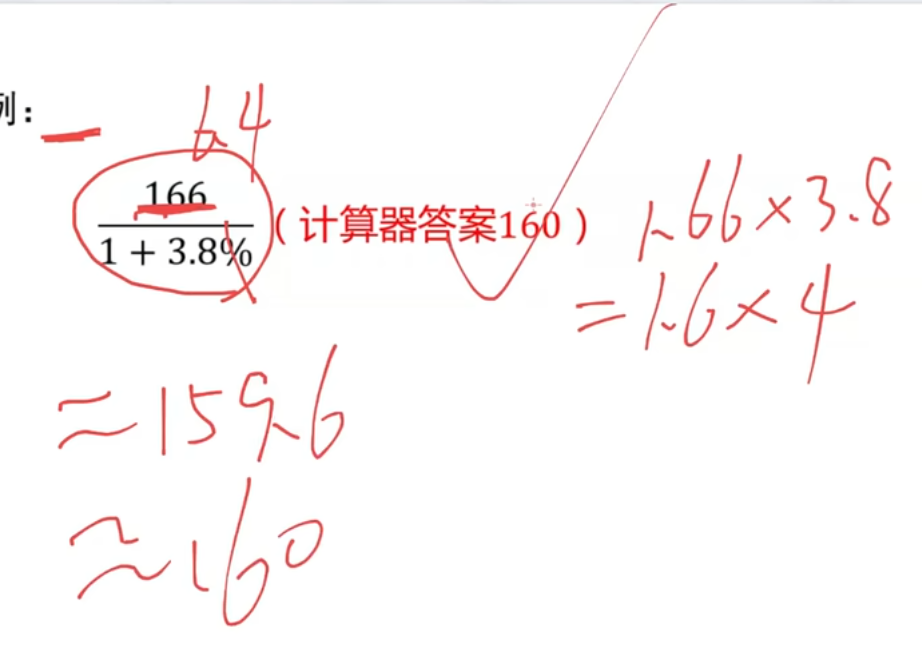 例：
6.4
166
1 + 3.8%
（计算器答案160）
1.66×3.8
=1.6×4
≈159.6
≈160